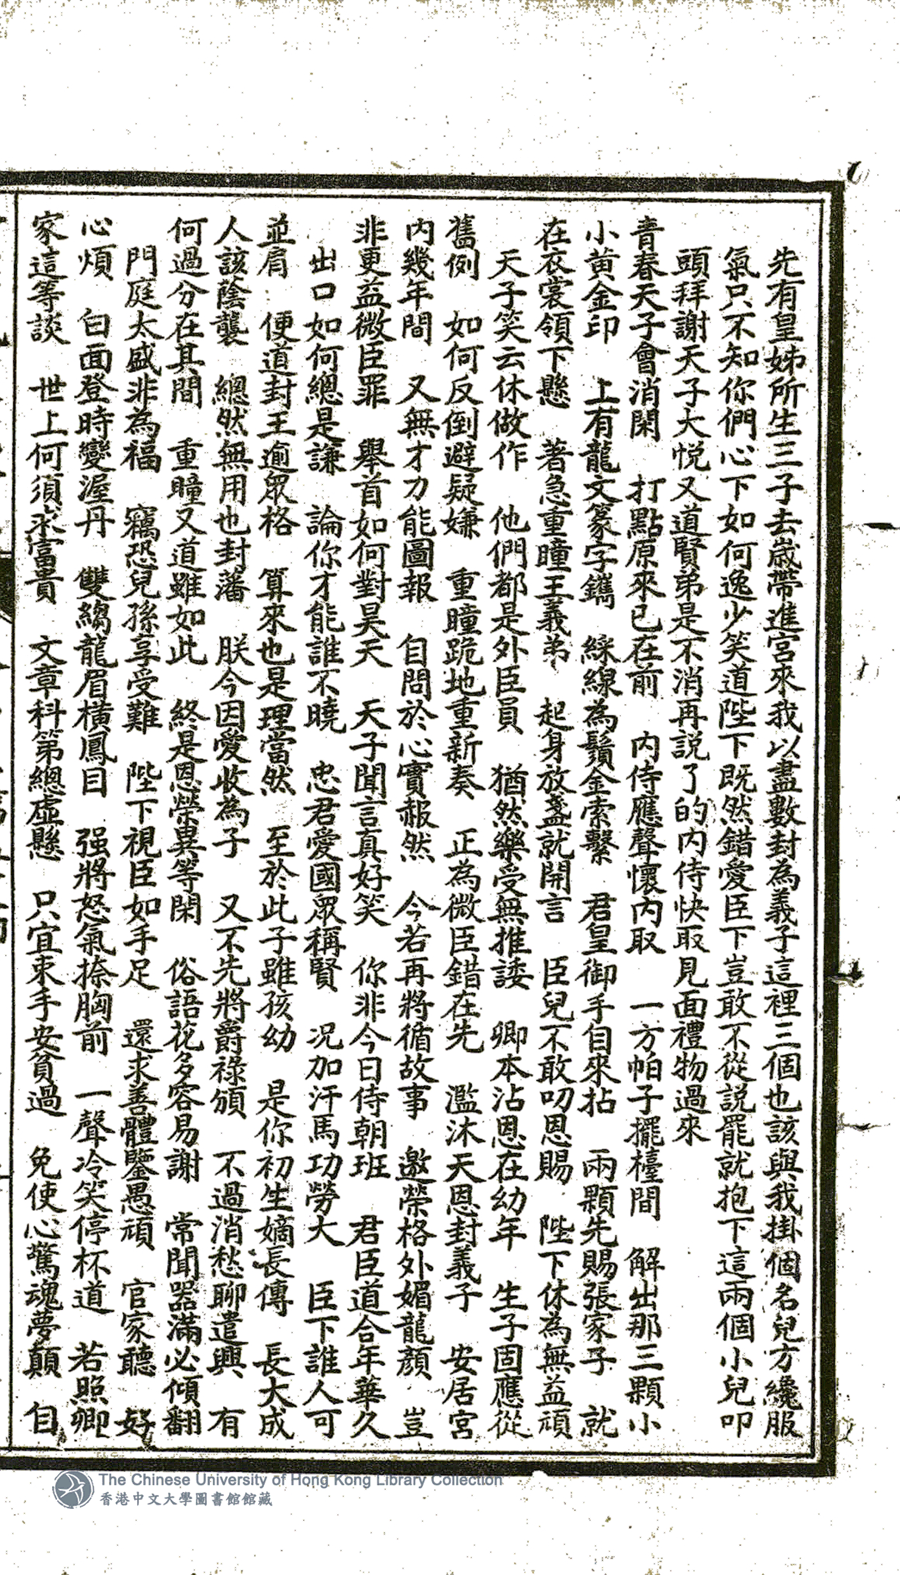 先有皇姊所生三子去歲帶進宮來我以盡數封為義子這裡三個也該與我掛個名兒方纔服
氣只不知你們心下如何逸少笑道陛下既然錯愛臣下豈敢不從說罷就抱下這兩個小兒叩
頭拜謝天子大悅又道賢弟是不消再說了的內侍快取見面禮物過來
青春天子會消閑　打點原來已在前　內侍應聲懷內取　一方帕子擺檯間　解出那三顆小
小黃金印　上有龍文篆字鐫　綵線為鬚金索繫　君皇御手自來拈　兩顆先賜張家子　就
在衣裳領下懸　著急重瞳王義弟　起身放盞就開言　臣兒不敢叨恩賜　陛下休為無益頑
天子笑云休做作　他們都是外臣員　猶然樂受無推諉　卿本沾恩在幼年　生子固應從
舊例　如何反倒避疑嫌　重瞳跪地重新奏　正為微臣錯在先　濫沐天恩封義子　安居宮
內幾年間　又無才力能圖報　自問於心實赧然　今若再將循故事　邀榮格外媚龍顏　豈
非更益微臣罪　舉首如何對昊天　天子聞言真好笑　你非今日侍朝班　君臣道合年華久
出口如何總是謙　論你才能誰不曉　忠君愛國眾稱賢　况加汗馬功勞大　臣下誰人可
並肩　便道封王逾眾格　算來也是理當然　至於此子雖孩幼　是你初生嫡長傳　長大成
人該蔭襲　總然無用也封藩　朕今因愛收為子　又不先將爵祿頒　不過消愁聊遣興　有
何過分在其間　重瞳又道雖如此　終是恩榮異等閑　俗語花多容易謝　常聞器滿必傾翻
門庭太盛非為福　竊恐兒孫享受難　陛下視臣如手足　還求善體鑒愚頑　官家聽　好
心煩　白面登時變渥丹　雙縐龍眉橫鳳目　强將怒氣捺胸前　一聲冷笑停杯道　若照卿
家這等談　世上何須求富貴　文章科第總虛懸　只宜束手安貧過　免使心驚魂夢顛　自
The Chinese University of Hong Kong Library Collection
香港中文大學圖書館館藏